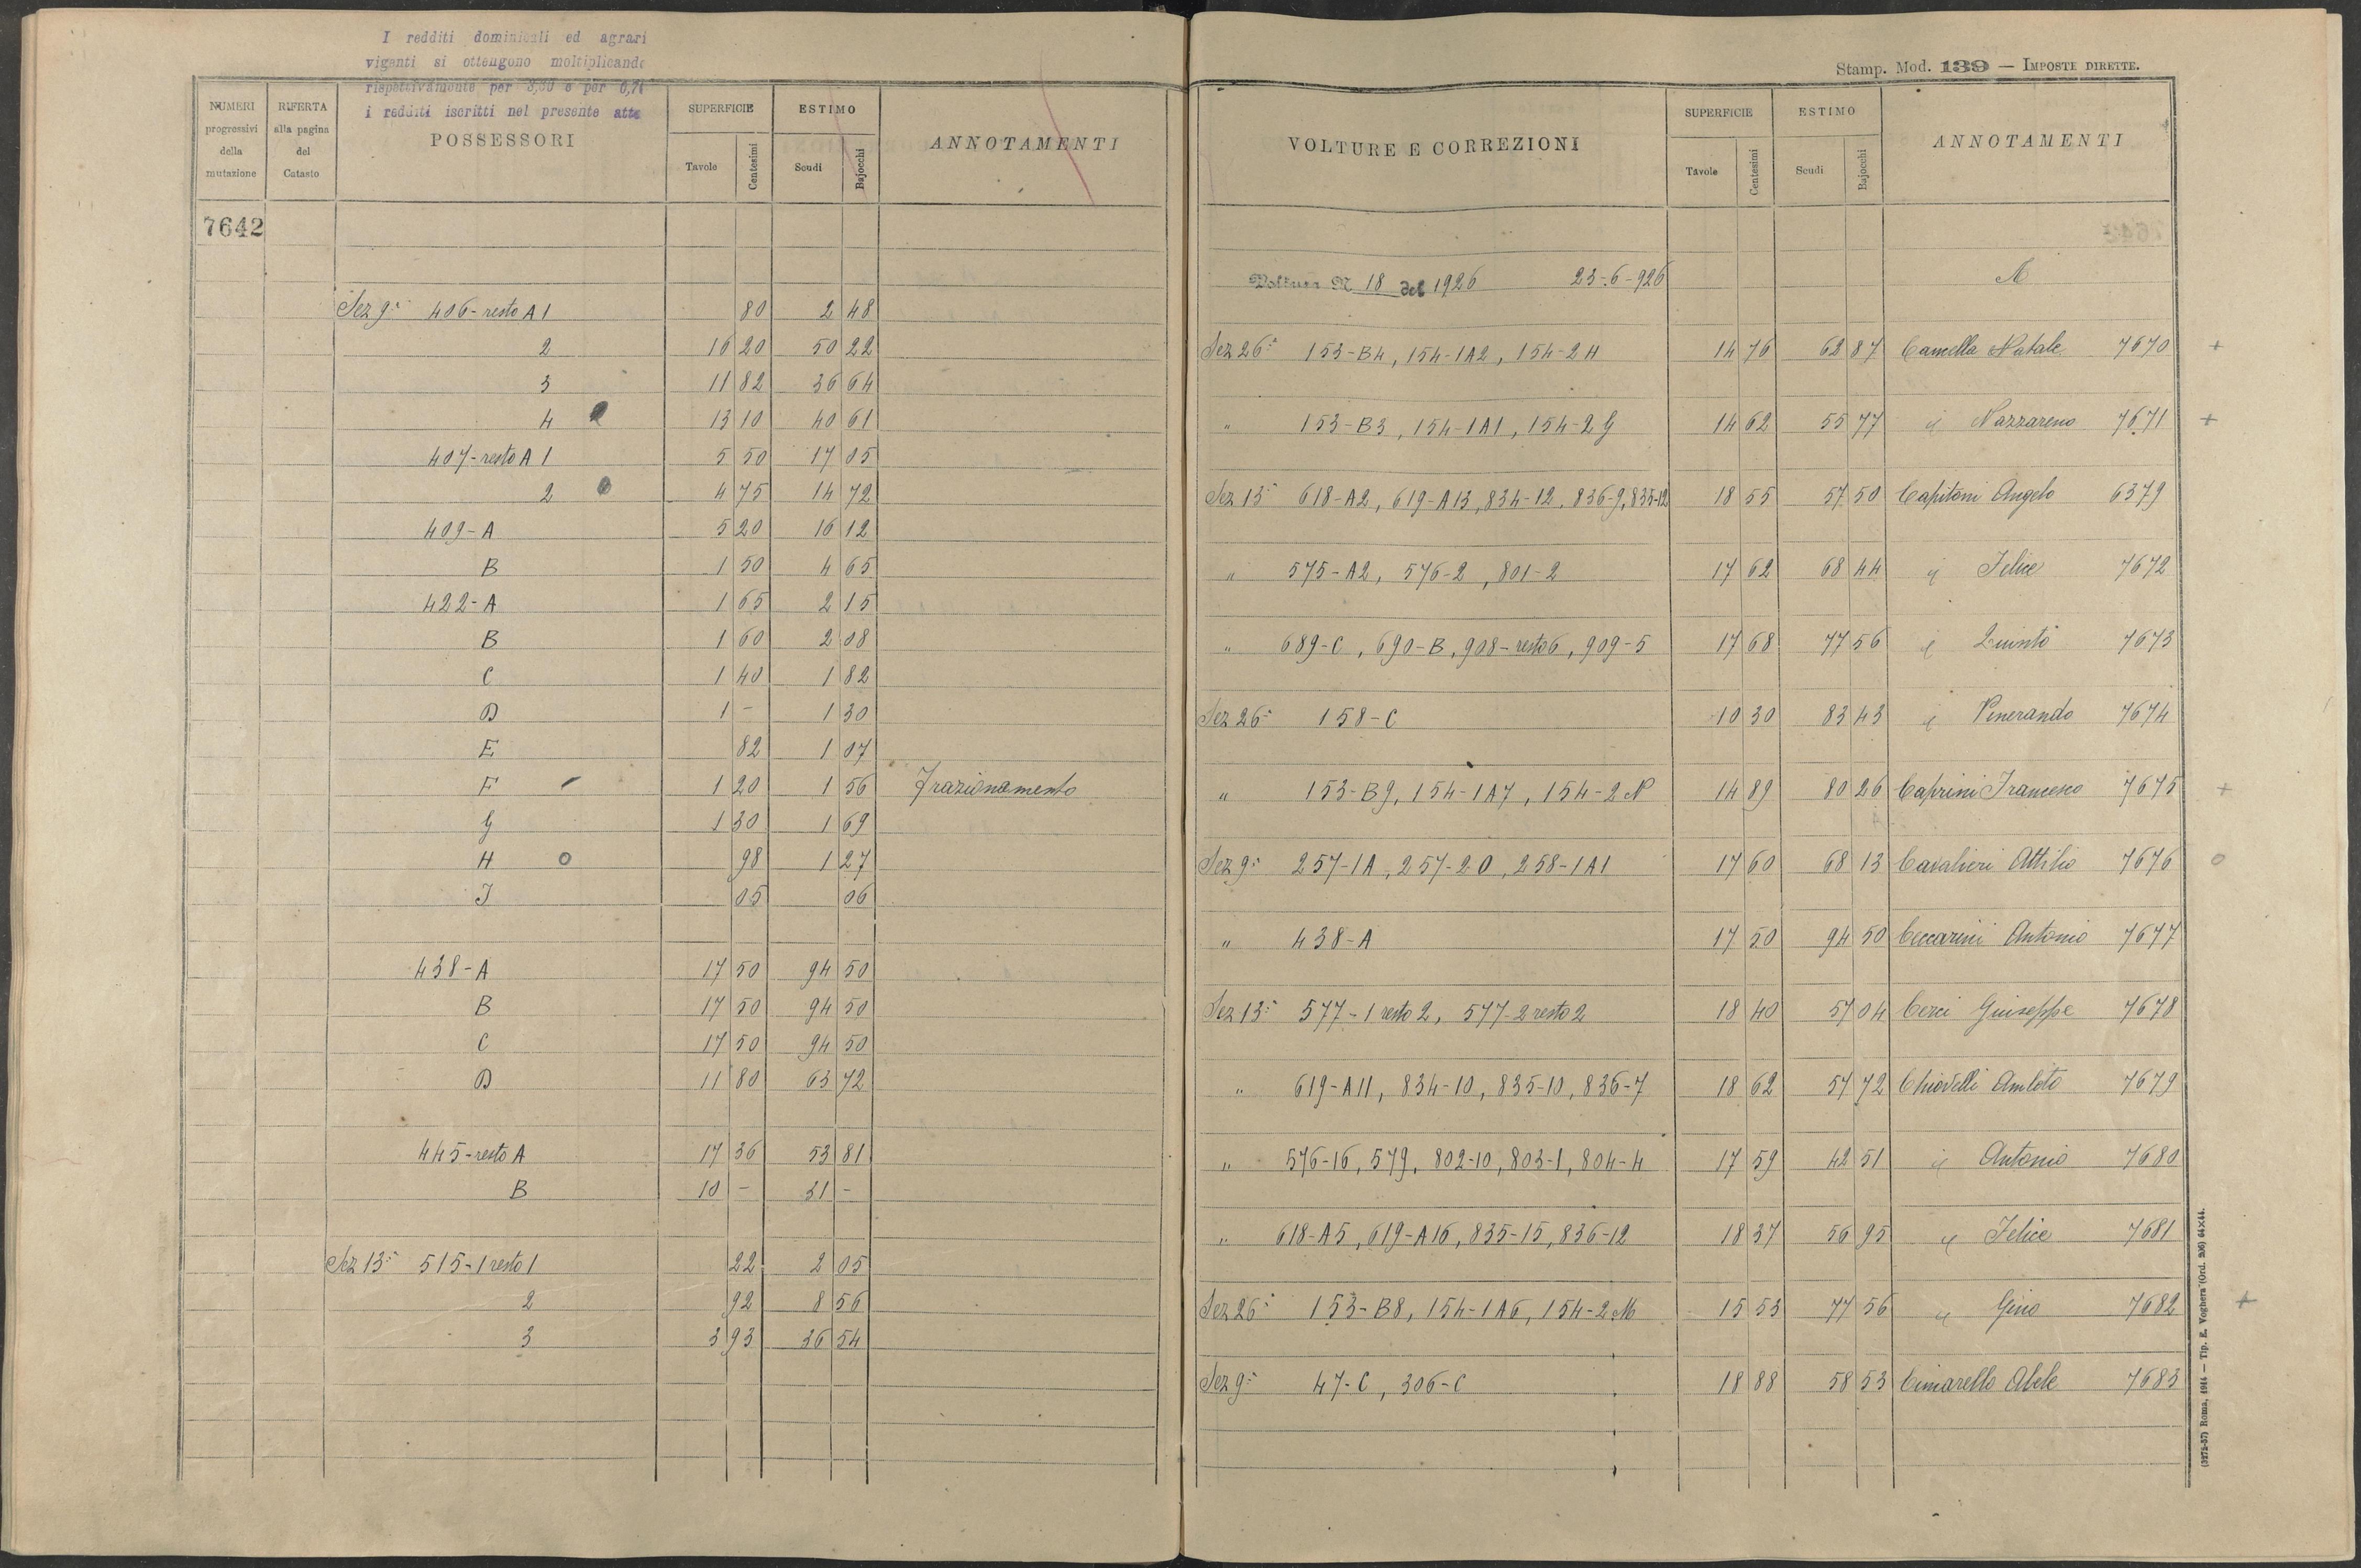 I redditi dominicali ed agrari
vigenti si ottengono moltiplicando
rispettivamente per 3,60 e per
i redditi iscritti nel presente atto
NUMERI progressivi della mutazione
RIFERTA alla pagina del Catasto
POSSESSORI
SUPERFICIE Tavole Centesimi
ESTIMO Scudi Bajocchi
ANNOTAMENTI
7642
Sez 9ª 406-resto A 1 80 2 48
2 16 20 50 22
3 11 82 36 64
4 13 10 40 61
407-resto A 1 5 50 17 05
2 4 75 14 72
409-A 5 20 16 12
B 1 50 4 65
422-A 1 65 2 15
B 1 60 2 08
C 1 40 1 82
D 1 - 1 30
E 82 1 07
F 1 20 1 56 Frazionamento
G 1 30 1 69
H 98 1 27
I 05 06
438-A 17 50 94 50
B 17 50 94 50
C 17 50 94 50
D 11 80 63 72
445-resto A 17 36 53 81
B 10 - 31 -
Sez 13ª 515-1 resto 1 22 2 05
2 92 8 56
3 3 93 36 54
Stamp. Mod. 139 — IMPOSTE DIRETTE.
VOLTURE E CORREZIONI
SUPERFICIE Tavole Centesimi
ESTIMO Scudi Bajocchi
ANNOTAMENTI
Voltura N 18 del 1926 23-6-926 A
Sez 26ª 153-B4, 154-1A2, 154-2H 14 76 62 87 Camella Natale 7670 +
" 153-B3, 154-1A1, 154-2G 14 62 55 77 " Nazzareno 7671 +
Sez 13ª 618-A2, 619-A13, 834-12, 836-9, 835-12 18 55 57 50 Capitoni Angelo 6379
" 575-A2, 576-2, 801-2 17 62 68 44 " Felice 7672
" 689-C, 690-B, 908-resto 6, 909-5 17 68 77 56 " Quinto 7673
Sez 26ª 158-C 10 30 83 43 " Venerando 7674
" 153-B9, 154-1A7, 154-2N 14 89 80 26 Caprini Francesco 7675 +
Sez 9ª 257-1A, 257-20, 258-1A1 17 60 68 13 Cavalieri Attilio 7676 o
" 438-A 17 50 94 50 Ceccarini Antonio 7677
Sez 13ª 577-1 resto 2, 577-2 resto 2 18 40 57 04 Cerci Giuseppe 7678
" 619-A11, 834-10, 835-10, 836-7 18 62 57 72 Chiovelli Amleto 7679
" 576-16, 579, 802-10, 803-1, 804-4 17 59 42 51 " Antonio 7680
" 618-A5, 619-A16, 835-15, 836-12 18 37 56 95 " Felice 7681
Sez 26ª 153-B8, 154-1A6, 154-2M 15 53 77 56 " Gino 7682 +
Sez 9ª 47-C, 306-C 18 88 58 53 Cimarello Abele 7683
(3275-57) Roma, 1914 — Tip. E. Voghera (Ord. 206) 64×44.